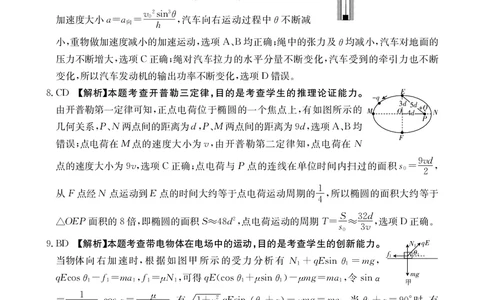 加速度大小a=a向=v₀²sin³θ/h,汽车向右运动过程中θ不断减
小,重物做加速度减小的加速运动,选项A、B均正确;绳中的张力及θ均减小,汽车对地面的
压力不断增大,选项C正确;绳对汽车拉力的水平分量不断变化,汽车受到的牵引力也不断
变化,所以汽车发动机的输出功率不断变化,选项D错误。
8.CD 【解析】本题考查开普勒三定律,目的是考查学生的推理论证能力。
由开普勒第一定律可知,正点电荷位于椭圆的一个焦点上,有如图所示的
几何关系,P、N两点间的距离为d,P、M两点间的距离为9d,选项A、B均
错误;点电荷在M点的速度大小为v,由开普勒第二定律知,点电荷在N
点的速度大小为9v,选项C正确;点电荷与P点的连线在单位时间内扫过的面积s₀=9vd/2,
从F点经N点运动到E点的时间大约等于点电荷运动周期的1/4,所以椭圆的面积大约等于
△OEP面积的8倍,即椭圆的面积S≈48d²,点电荷运动的周期T=S/s₀≈32d/3v,选项D正确。
9.BD 【解析】本题考查带电物体在电场中的运动,目的是考查学生的创新能力。
当物体向右加速时,根据如图甲所示的受力分析有N₁+qEsin θ₁=mg,
qEcos θ₁-f₁=ma₁,f₁=μN₁,可得qE(cos θ₁+μsin θ₁)-μmg=ma₁,令sin α
-q
E
3d
5d
M
O
4d
P
N
F
N₁
qE
f₁
θ₁
mg
甲